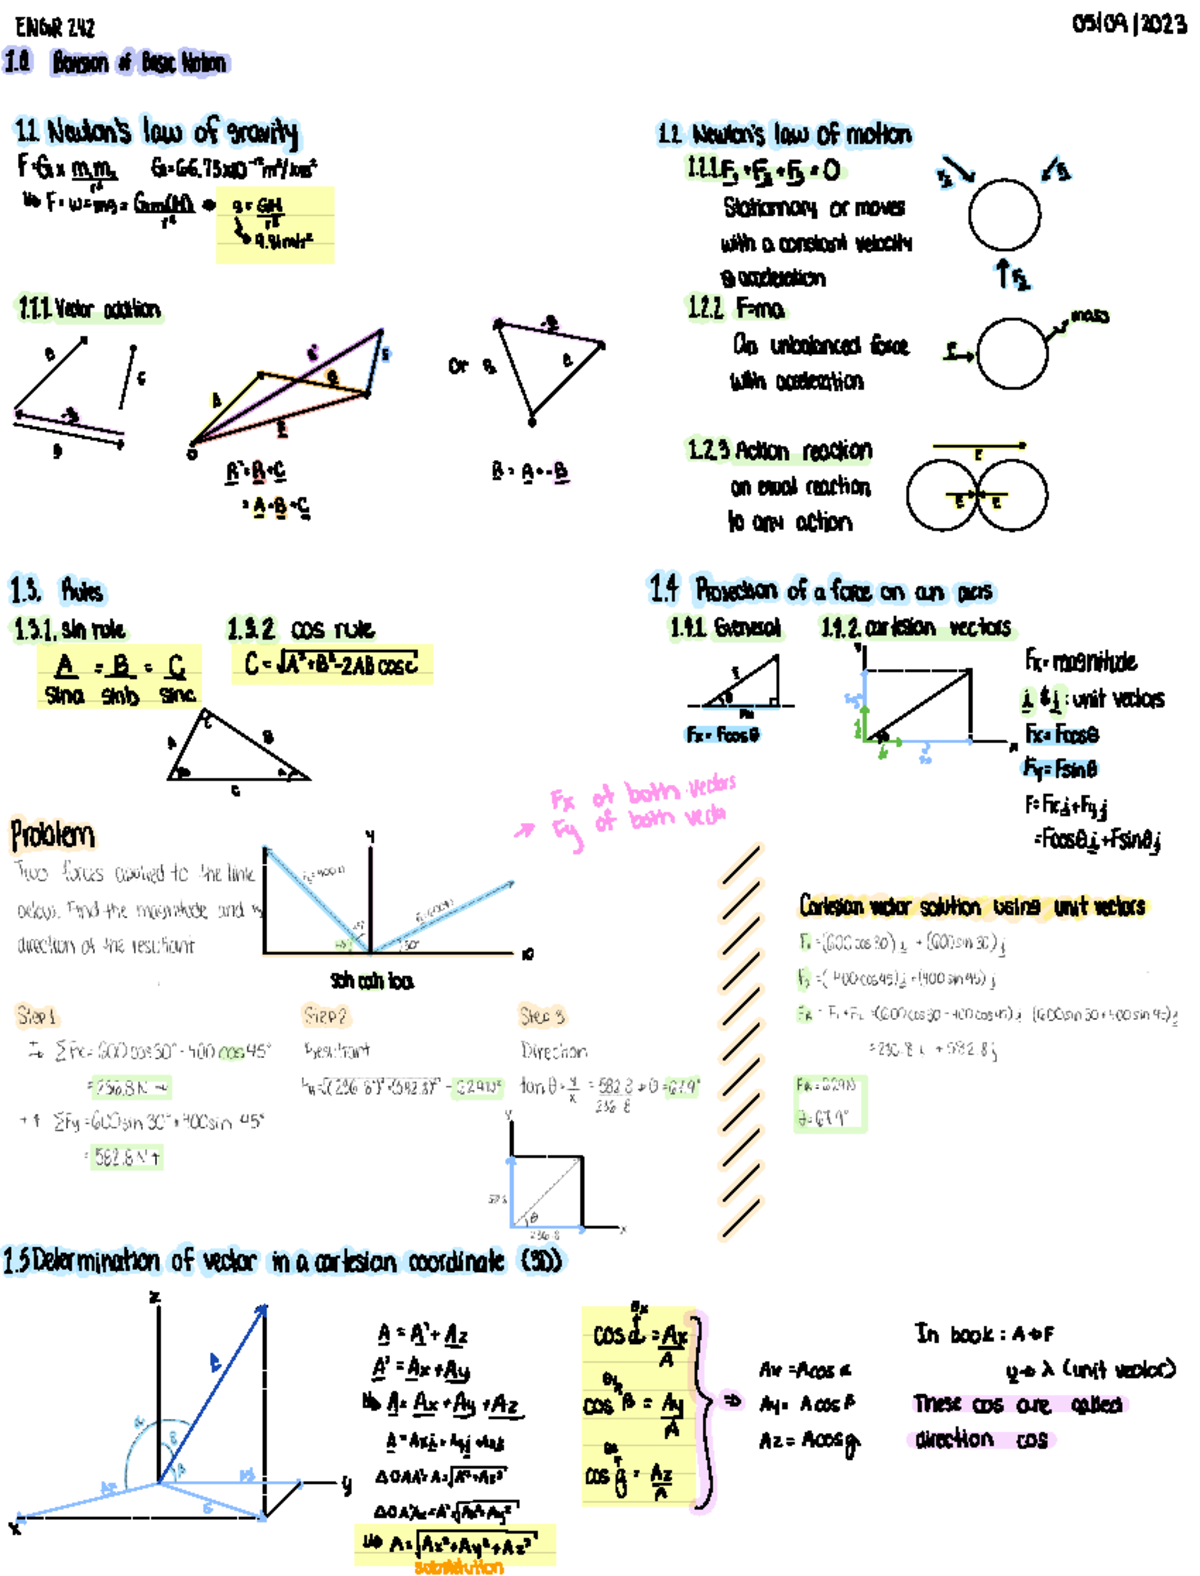 ENGR 242
05/09/2023
1.0 Revision of Basic Notion
1.1 Newton's law of gravity
F=G x m₁m₂/r²
G=66.73x10⁻¹² m³/kgs²
F=w=mg= Gm(M)/r² ⇒ g=GM/r²
9.81m/s²
1.1.1 Vector addition
A
-B
B
C
A
B
C
R'
R
O
or
R
-B
A
O
R'=R+C
=A+B+C
R=A+-B
1.2 Newton's law of motion
1.2.1 F₁+F₂+F₃=0
Stationnary or moves
with a constant velocity
0 acceleration
1.2.2 F=ma
On unbalanced force
with acceleration
F
mass
1.2.3 Action reaction
an equal reaction
to any action
F
F
F
1.3. Rules
1.3.1. sin rule
A/sina = B/sinb = C/sinc
1.3.2 cos rule
C=√A²+B²-2ABcosc
A
B
C
1.4 Projection of a force on an axis
1.4.1 General
F
θ
Fx
Fx=Fcosθ
1.4.2. cartesian vectors
Fx=magnitude
i & j: unit vectors
Fx=Fcosθ
Fy=Fsinθ
F=Fx i+Fy j
=Fcosθ i+Fsinθ j
Fx of both vectors
Fy of both vecto
Problem
Two forces applied to the link
below. Find the magnitude and
direction of the resultant
y
F₂=400N
F₁=600N
45°
30°
Soh cah toa
Step 1
∑Fx=600cos30°-400cos45°
=236.8N →
+↑ ∑Fy=600sin 30°+400sin 45°
=582.8N ↑
Step 2
Resultant
FR=√(236.8)²+(582.8)² = 629N
Step 3
Direction
tanθ=y/x = 582.8/236.8 → θ=67.9°
y
582.8
θ
236.8
x
Cartesian vector solution using unit vectors
F₁=(600cos30)i + (600sin30)j
F₂=(-400cos45)i+(400sin45)j
FR = F₁+F₂ =(600cos30-400cos45)i (600sin30+400sin45)j
=236.8 i +582.8j
FR=629N
θ=67.9°
1.5 Determination of vector in a cartesian coordinate (3D)
z
A
y
x
A = A'+Az
A' = Ax+Ay
A= Ax+Ay+Az
A=Axi+Ayj+Azk
△OAA'=A=√A'²+Az²
△OA'Ax=A'=√Ax²+Ay²
A=√Ax²+Ay²+Az²
substitution
θx
cos α = Ax/A
θy
cos β = Ay/A
θz
cos g = Az/A
⇒
Ax =Acos α
Ay= Acos β
Az=Acos g
In book: A→F
u→λ (unit vector)
These cos are called
direction cos